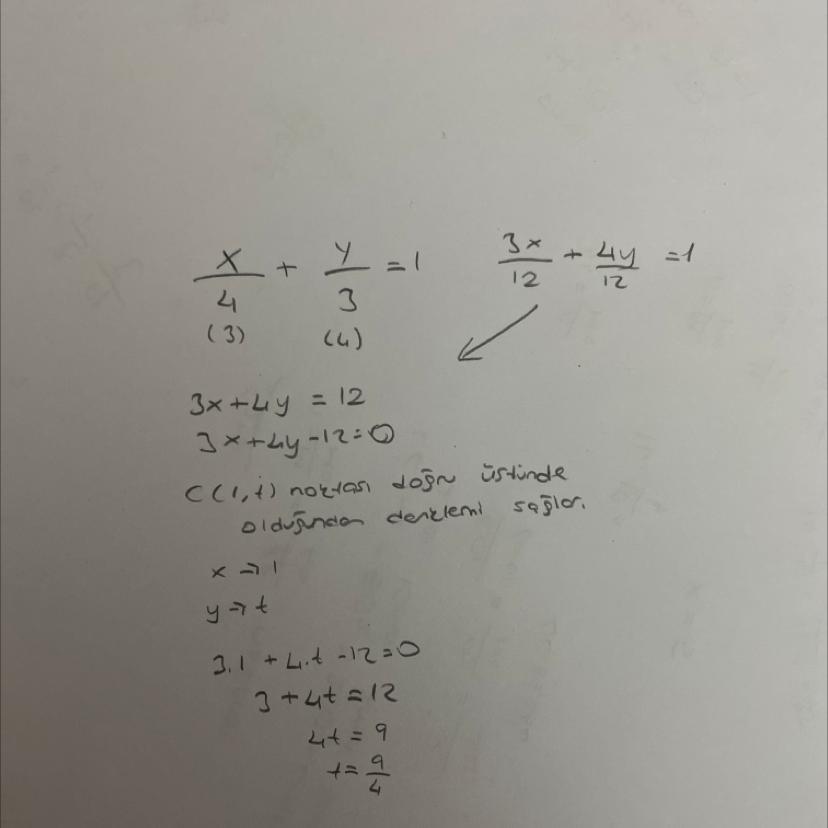 x/4 + y/3 = 1    3x/12 + 4y/12 = 1
(3) (4)
3x+4y = 12
3x+4y-12=0
C(1,t) noktası doğru üstünde
olduğundan denklemi sağlar.
x ⇒ 1
y ⇒ t
3.1 + 4.t -12=0
3 + 4t = 12
4t = 9
t = 9/4